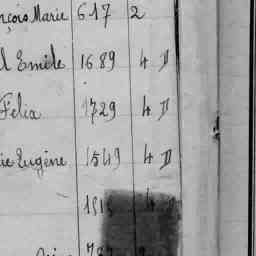 nçois Marie 617 2
l Emile 1689 4 D
Felix 1729 4 D
ie Eugène 1549 4 D
4